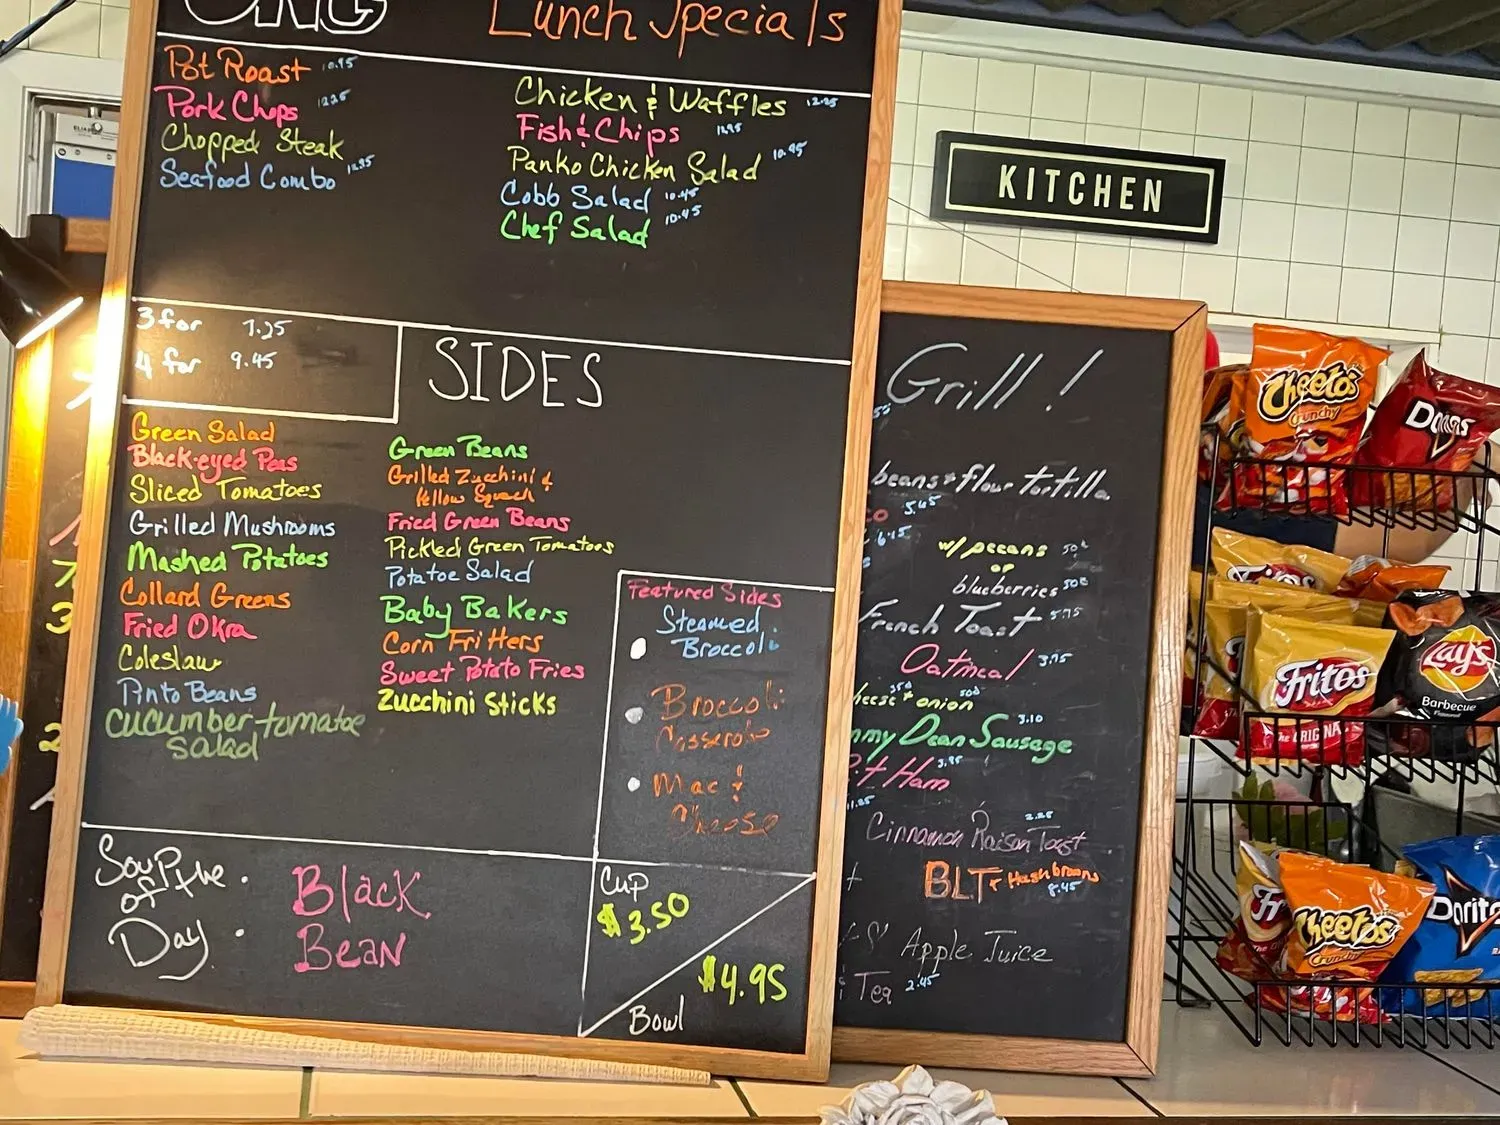 Lunch Specials
Pot Roast 10.95
Pork Chops 12.25
Chopped Steak
Seafood Combo 12.95
Chicken & Waffles 12.25
Fish & Chips 12.95
Panko Chicken Salad 10.95
Cobb Salad 10.45
Chef Salad 10.45
3 for 7.25
4 for 9.45
SIDES
Green Salad
Black-eyed Peas
Sliced Tomatoes
Grilled Mushrooms
Mashed Potatoes
Collard Greens
Fried Okra
Coleslaw
Pinto Beans
cucumber tomatoe
salad
Green Beans
Grilled Zucchini &
Yellow Squash
Fried Green Beans
Pickled Green Tomatoes
Potatoe Salad
Baby Bakers
Corn Fritters
Sweet Potato Fries
Zucchini Sticks
Featured Sides
Steamed
Broccoli
Broccoli
Casserole
Mac &
Cheese
Soup
of the
Day
Black
Bean
Cup
$3.50
$4.95
Bowl
KITCHEN
Grill!
beans + flour tortilla
5.45
6.45
w/ pecans 50¢
or
blueberries 50¢
French Toast 5.75
Oatmeal 3.75
onion
Dean Sausage 3.10
Ham 3.95
Cinnamon Raison Toast 2.25
BLT + Hashbrowns
8.45
Apple Juice
Tea 2.45
Cheetos
Crunchy
Doritos
Fritos
The ORIGINAL
Lay's
Barbecue
Flavored
Cheetos
Crunchy
Doritos